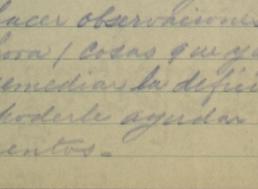 hacer observaciones
hora / cosas que ya
remediar la defici
poderle ayudar
entos.